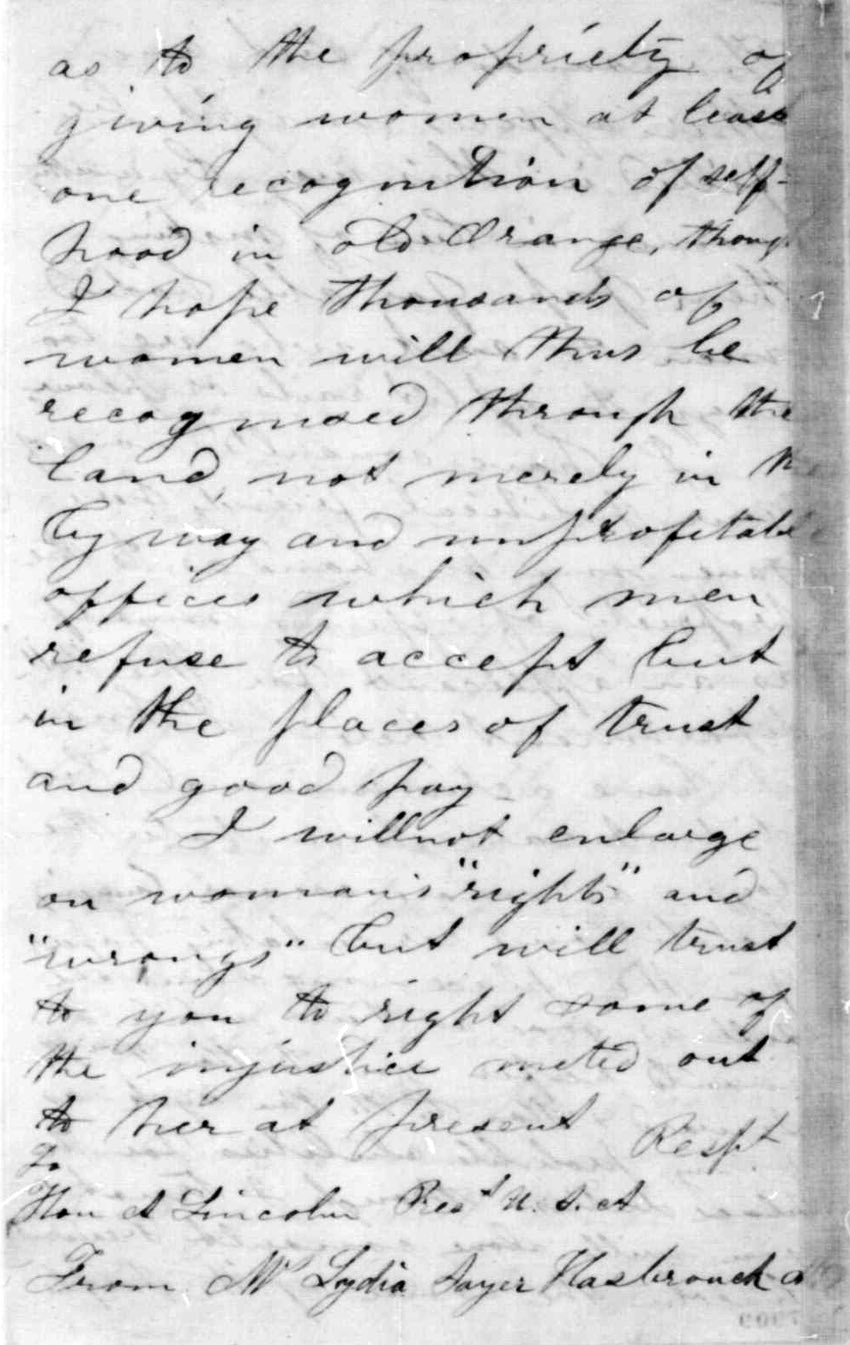 as to the propriety of
giving women at least
one recognition of self-
hood in old Orange, though
I hope thousands of
women will thus be
recognized through the
land, not merely in the
by way and unprofitable
offices which men
refuse to accept but
in the places of trust
and good pay
I will not enlarge
on woman's "rights" and
"wrongs" but will trust
to you to right some of
the injustice meted out
to her at present Respt
To
Hon A Lincoln Prest U. S. A
From Mrs Lydia Sayer Hasbrouck